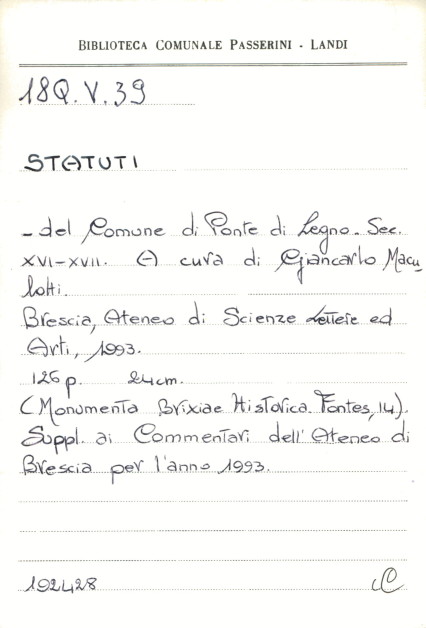 BIBLIOTECA COMUNALE PASSERINI - LANDI
18Q.V.39
STATUTI
- del Comune di Ponte di Legno. Sec.
XVI-XVII. A cura di Giancarlo Macu
lotti.
Brescia, Ateneo di Scienze Lettere ed
Arti, 1993.
126 p. 24 cm.
(Monumenta Brixiae Historica. Fontes, 14).
Suppl. ai Commentari dell'Ateneo di
Brescia per l'anno 1993.
192428